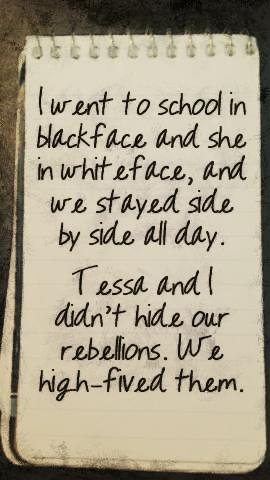 I went to school in
blackface and she
in whiteface, and
we stayed side
by side all day.
Tessa and I
didn't hide our
rebellions. We
high-fived them.